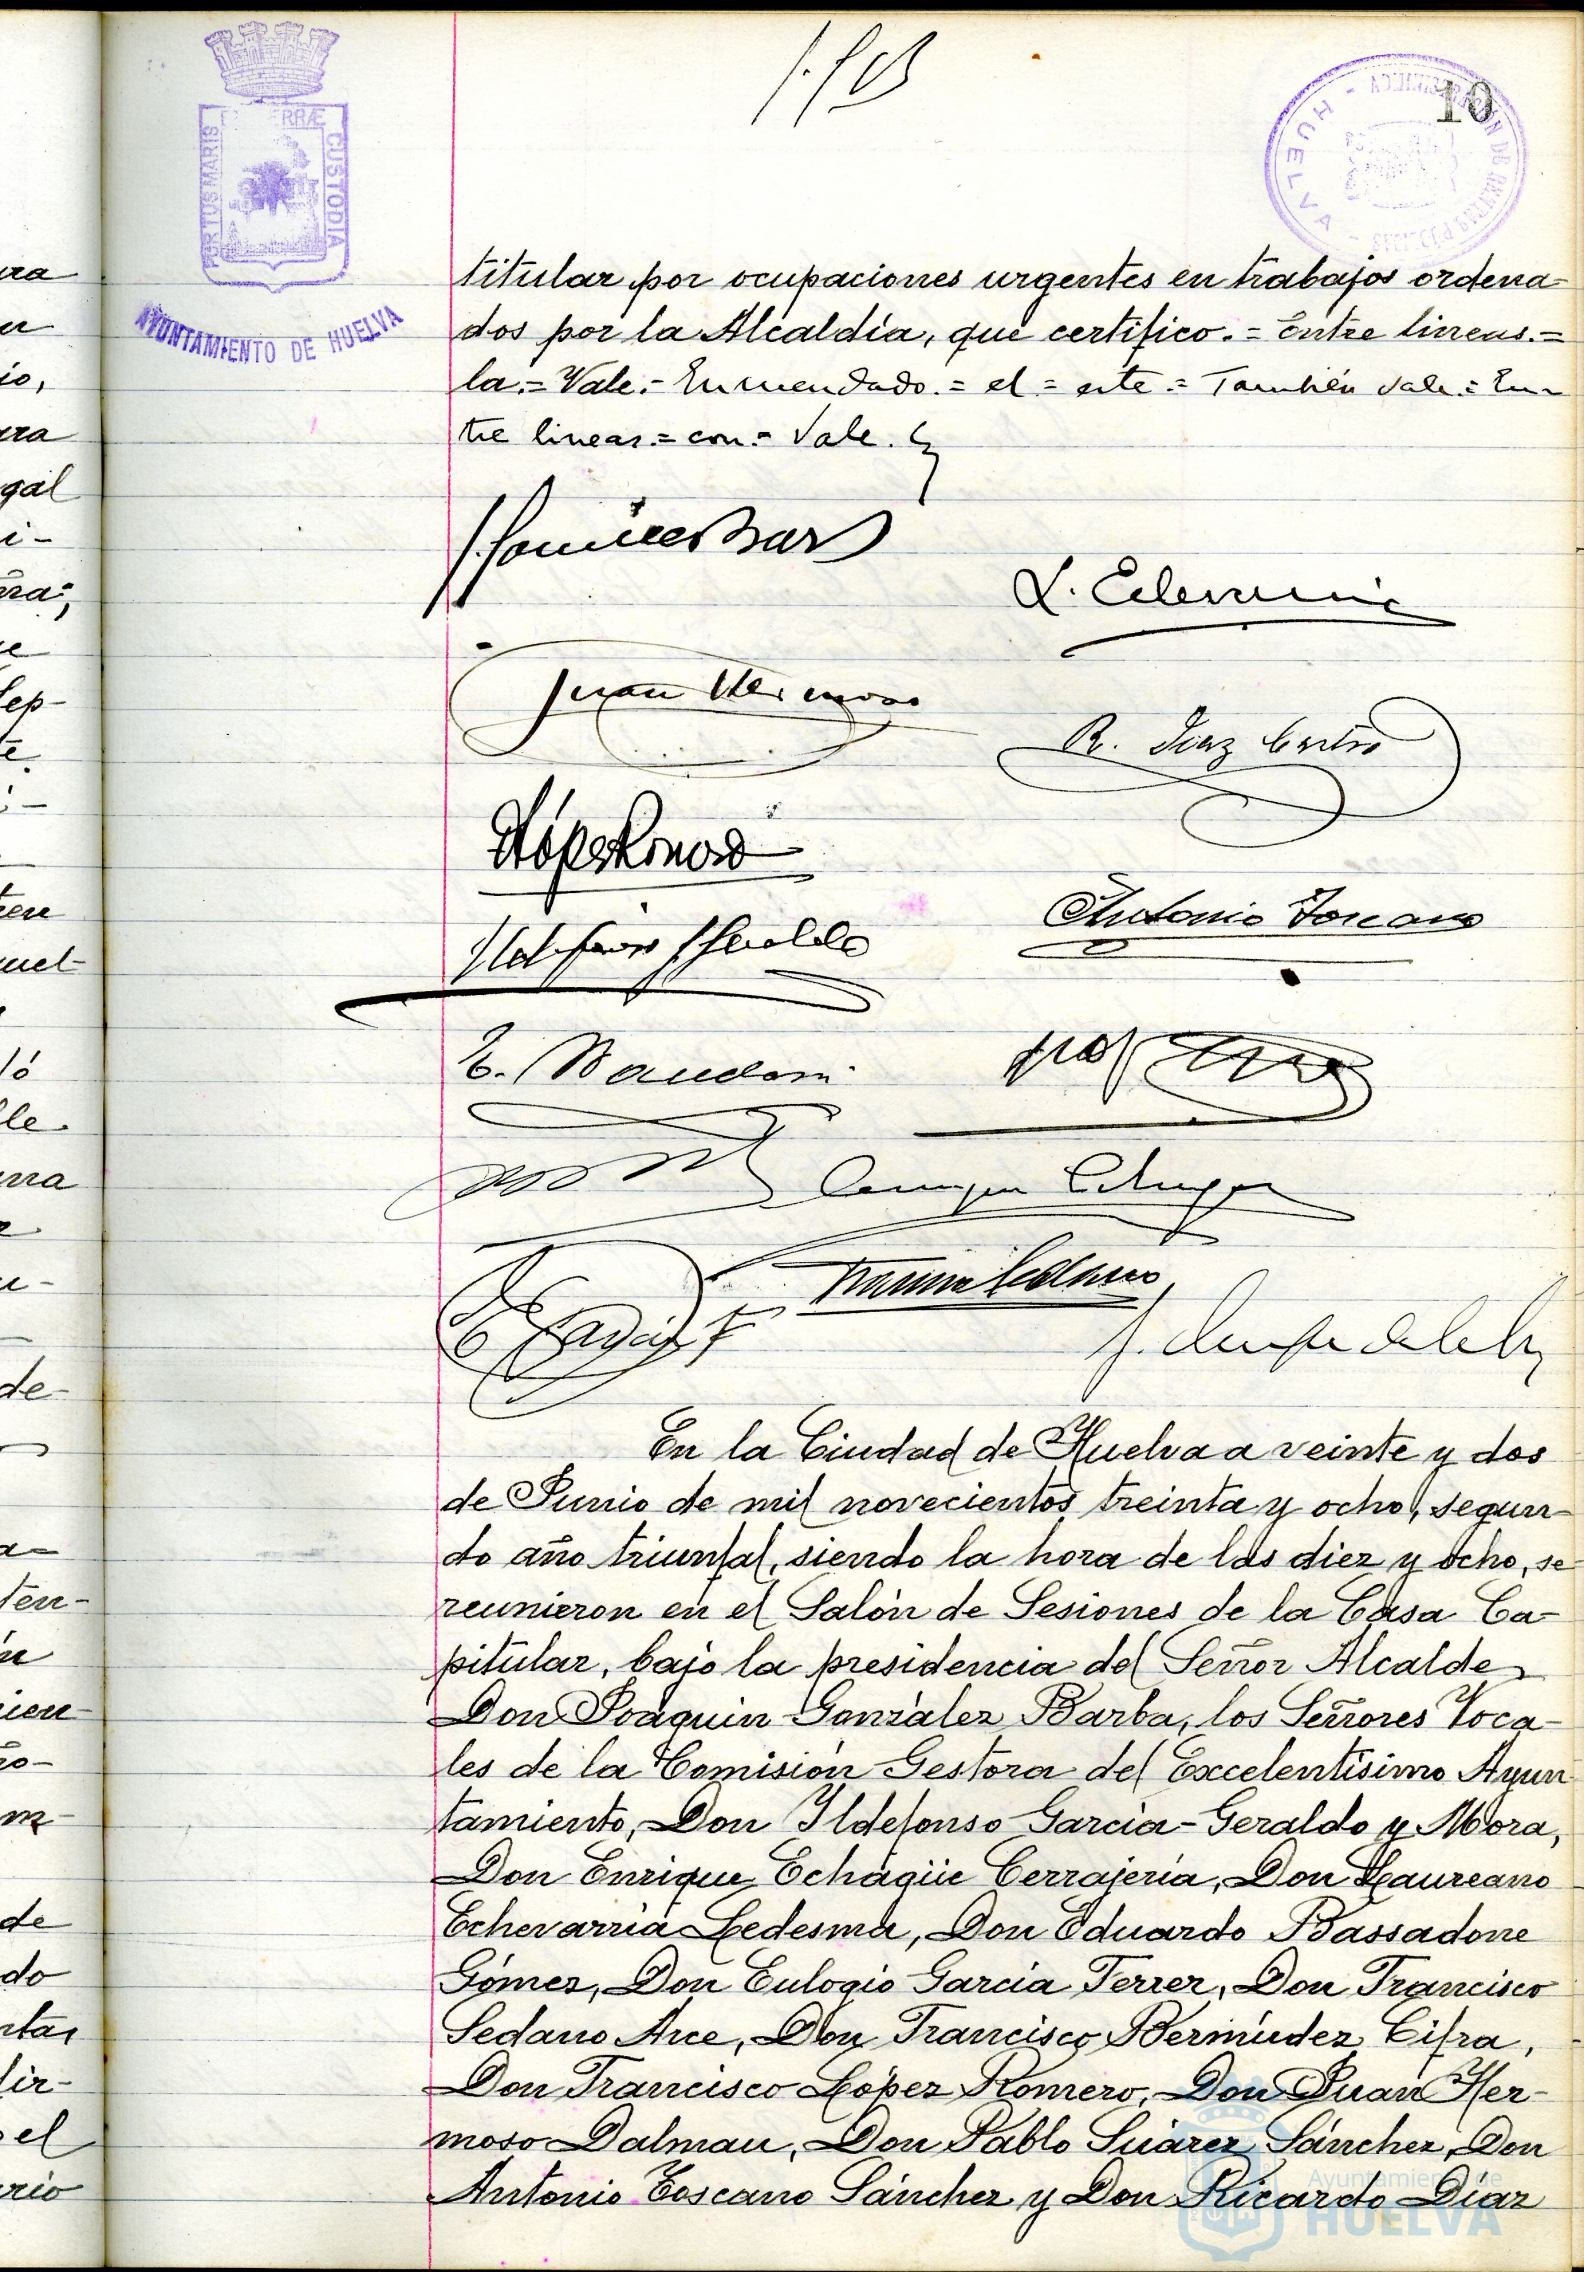 10
PORTUS MARIS
TERRÆ
CUSTODIA
AYUNTAMIENTO DE HUELVA
HUELVA
titular por ocupaciones urgentes en trabajos ordena-
dos por la Alcaldía, que certifico.= Entre lineas.=
la.= Vale.- Enmendado.= el = este.= También vale.= En-
tre lineas.= con.= Vale.
L. Echevarria
Juan Hermoso
R. Diaz Castro
López Romero
Antonio Toscano
E. Bassadone
Enrique Echague
En la Ciudad de Huelva a veinte y dos
de Junio de mil novecientos treinta y ocho, segun-
do año triunfal, siendo la hora de las diez y ocho, se
reunieron en el Salón de Sesiones de la Casa Ca-
pitular, bajo la presidencia del Señor Alcalde
Don Joaquin González Barba, los Señores Voca-
les de la Comisión Gestora del Excelentísimo Ayun
tamiento, Don Ildefonso García-Geraldo y Mora,
Don Enrique Echágüe Cerrajería, Don Laureano
Echevarria Ledesma, Don Eduardo Bassadone
Gómez, Don Eulogio García Ferrer, Don Francisco
Sedano Arce, Don Francisco Bermúdez Cifra,
Don Francisco López Romero, Don Juan Her-
moso Dalmau, Don Pablo Suárez Sánchez, Don
Antonio Toscano Sánchez y Don Ricardo Díaz
Ayuntamiento de
HUELVA